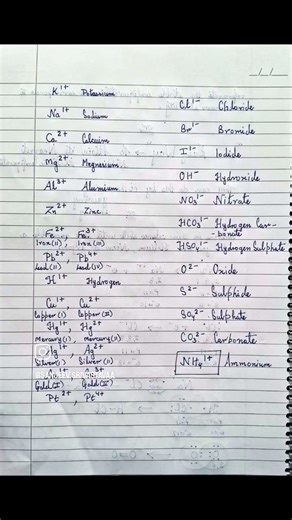 K¹⁺ Potassium
Na¹⁺ Sodium
Ca²⁺ Calcium
Mg²⁺ Magnesium
Al³⁺ Aluminium
Zn²⁺ Zinc
Fe²⁺, Fe³⁺
Iron(II), Iron(III)
Pb²⁺ Pb⁴⁺
Lead(II) Lead(IV)
H¹⁺ Hydrogen
Cu¹⁺ Cu²⁺
Copper(I) Copper(II)
Hg¹⁺ Hg²⁺
Mercury(I), mercury(II)
Ag¹⁺ Ag²⁺
Silver(I) Silver(II)
Gold(I) Gold(III)
Pt²⁺, Pt⁴⁺
Cl¹⁻ Chloride
Br¹⁻ Bromide
I¹⁻ Iodide
OH⁻ Hydroxide
NO₃¹⁻ Nitrate
HCO₃¹⁻ Hydrogen Car-
bonate
HSO₄¹⁻ Hydrogen Sulphate
O²⁻ Oxide
S²⁻ Sulphide
SO₄²⁻ Sulphate
CO₃²⁻ Carbonate
NH₄¹⁺ Ammonium